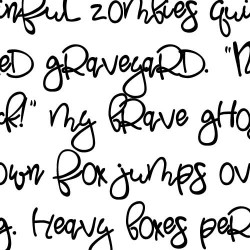 nful zombies qui
ed graveyard. "N
ck!" my brave gho
own fox jumps ov
g. Heavy boxes per